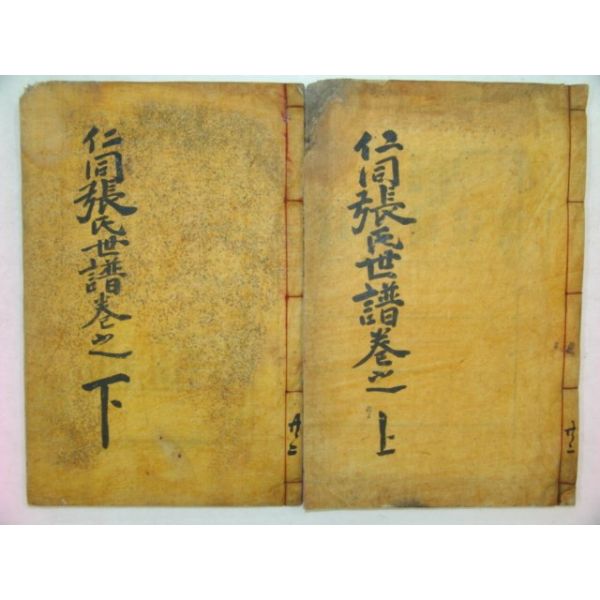 仁同張氏世譜卷之上
共二
仁同張氏世譜卷之下
共二